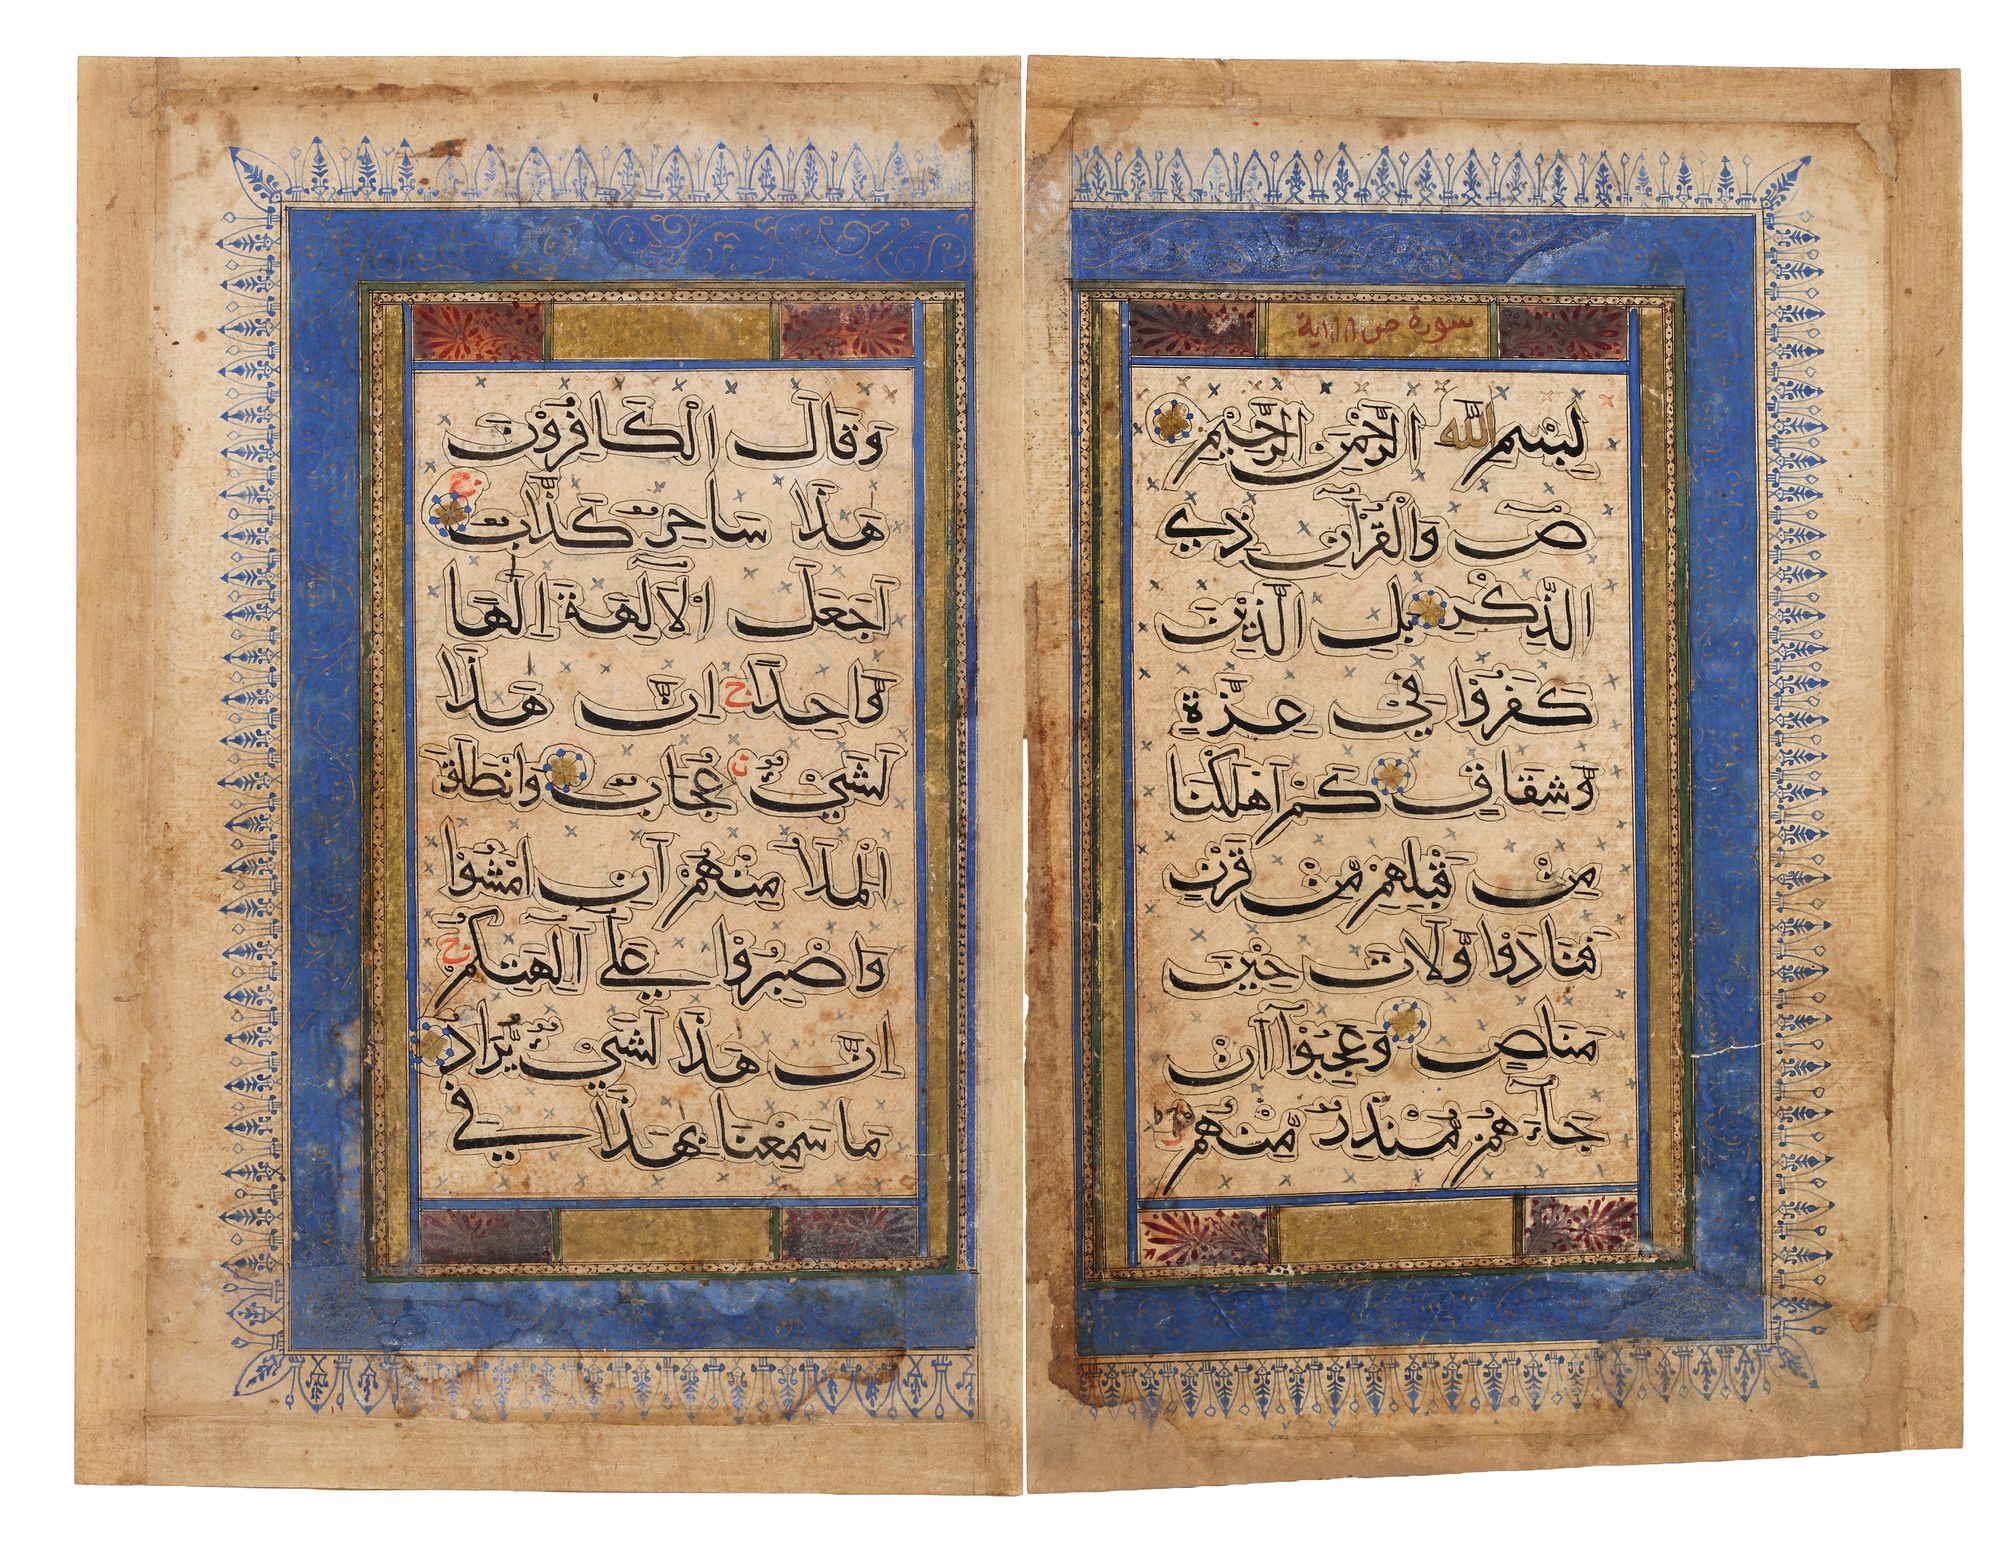 سورة ص
بِسْمِ اللّٰه الرَّحْمٰنِ الرَّحِيْمِ
صٓ وَالْقُرْاٰنِ ذِي
الذِّكْرِ بَلِ الَّذِيْنَ
كَفَرُوْا فِيْ عِزَّةٍ
وَّشِقَاقٍ كَمْ اَهْلَكْنَا
مِنْ قَبْلِهِمْ مِّنْ قَرْنٍ
فَنَادَوْا وَّلَاتَ حِيْنَ
مَنَاصٍ وَعَجِبُوْٓا اَنْ
جَآءَهُمْ مُّنْذِرٌ مِّنْهُمْ
وَقَالَ الْكَافِرُوْنَ
هٰذَا سَاحِرٌ كَذَّابٌ
اَجَعَلَ الْاٰلِهَةَ اِلٰهًا
وَّاحِدًا اِنَّ هٰذَا
لَشَيْءٌ عُجَابٌ وَانْطَلَقَ
الْمَلَاُ مِنْهُمْ اَنِ امْشُوْا
وَاصْبِرُوْا عَلٰٓى اٰلِهَتِكُمْ
اِنَّ هٰذَا لَشَيْءٌ يُّرَادُ
مَا سَمِعْنَا بِهٰذَا فِي